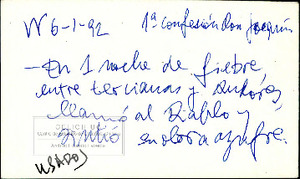 W 6-1-92 1ª confesión don Joaquín
- En 1 noche de fiebre
entre tercianas y sudores
llamó al Diablo y
sintió en olor a azufre.
USADOS